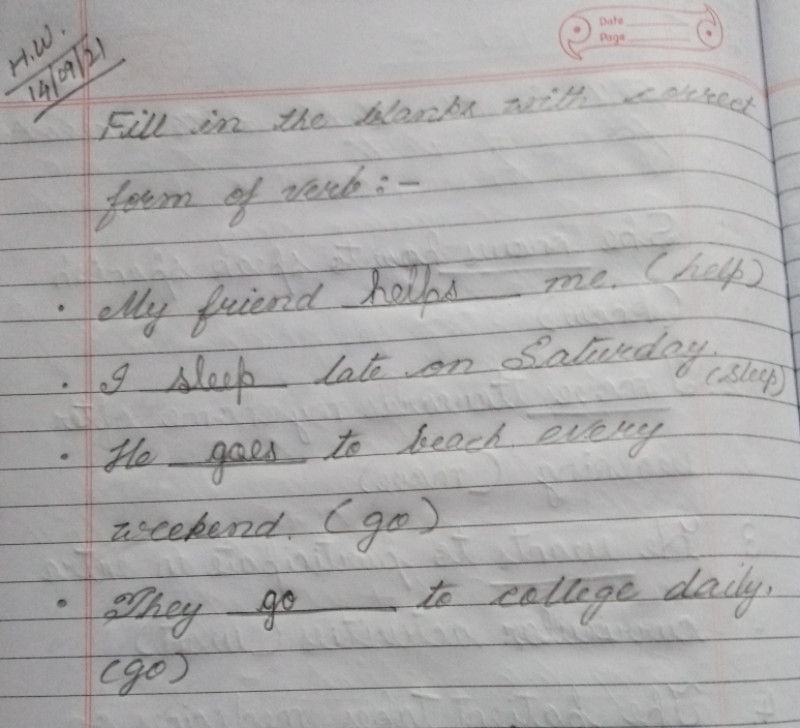 H.W.
14/09/21
Date
Page
Fill in the blanks with correct
form of verb :-
• My friend helps me. (help)
• I sleep late on Saturday.
(sleep)
• He goes to beach every
weekend. (go)
• They go to college daily.
(go)